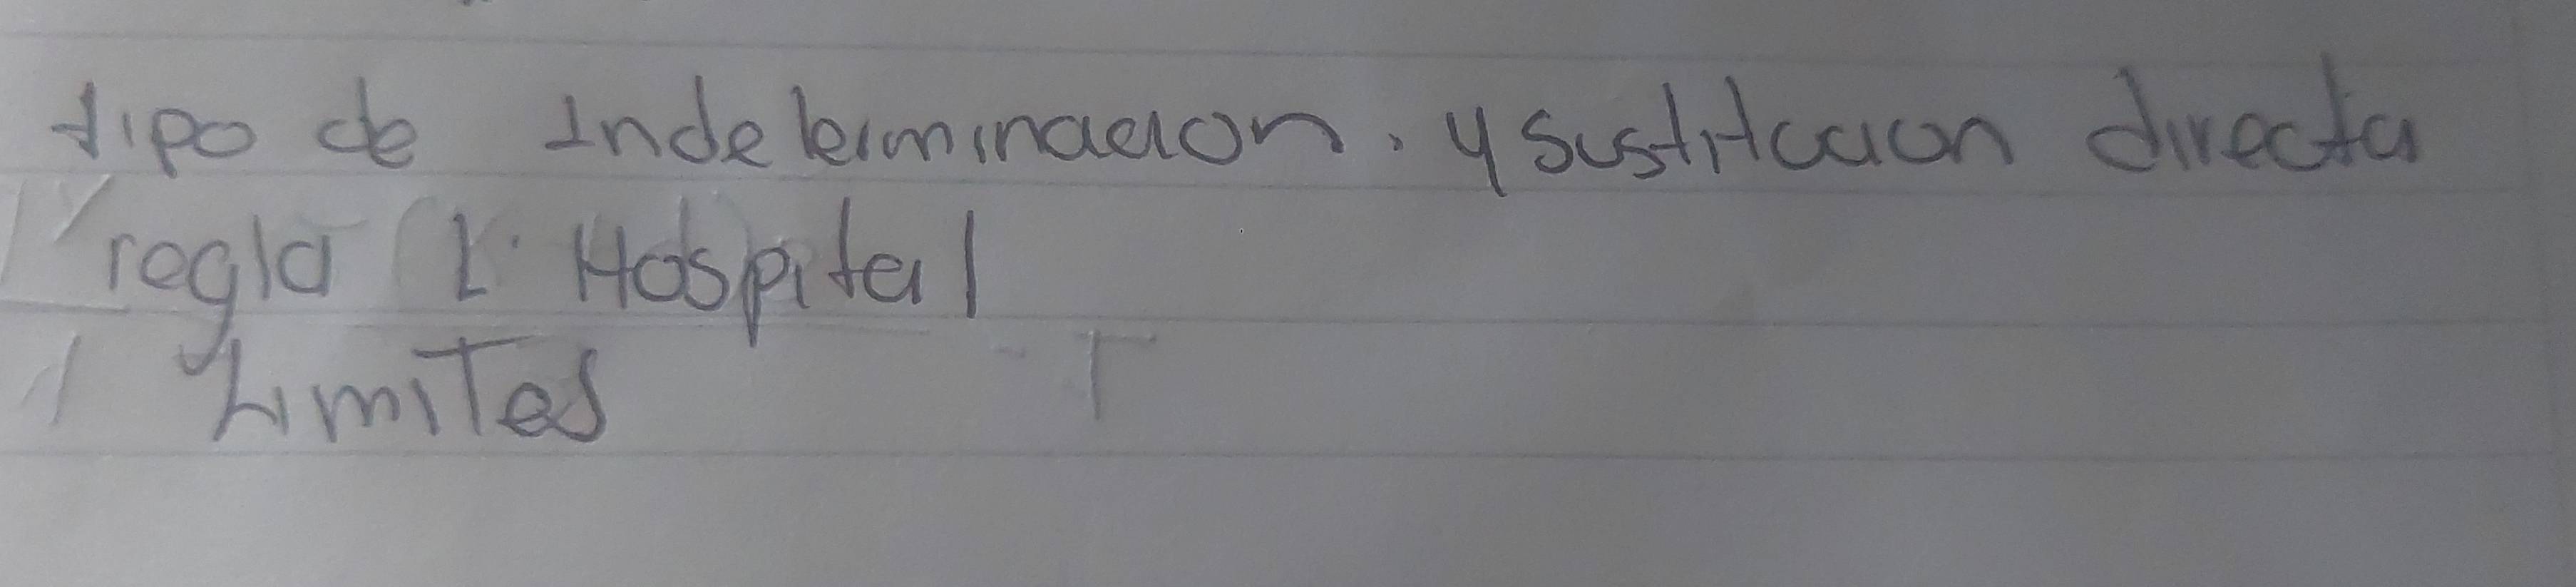 tipo de Indeterminacion. y sustitucion directa
regla L' Hospital
Limites